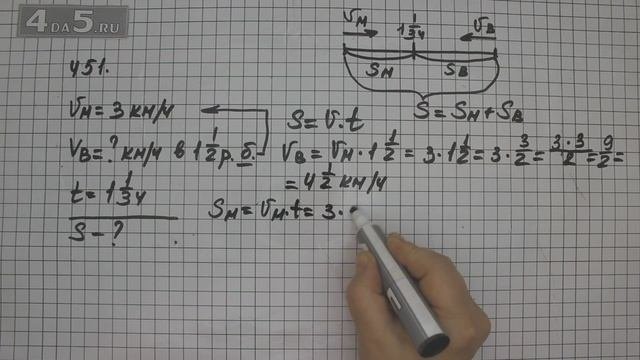 4DA5.RU
451.
Vм = 3 км/ч
Vв = ? км/ч в 1 1/2 р. б.
t = 1 1/3 ч
S - ?
Vм 1 1/3 ч Vв
Sм Sв
S = Sм + Sв
S = V · t
Vв = Vм · 1 1/2 = 3 · 1 1/2 = 3 · 3/2 = 3·3/2 = 9/2 =
= 4 1/2 км/ч
Sм = Vм · t = 3 ·